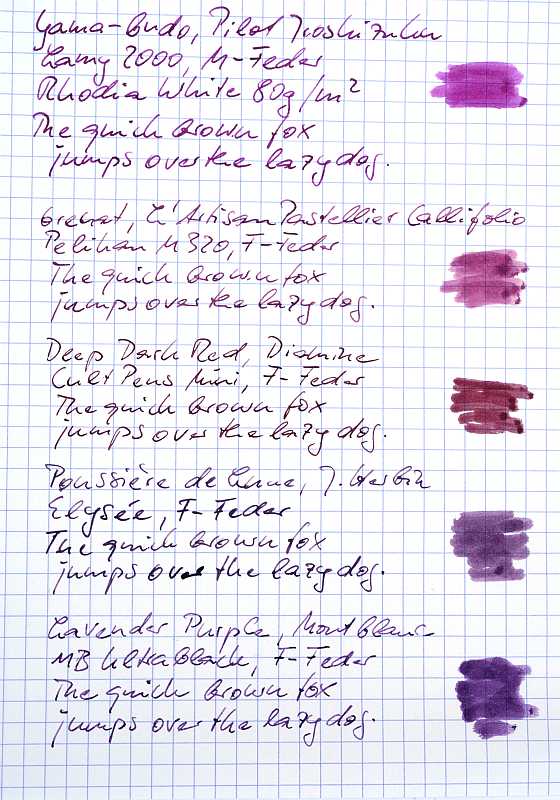 Yama-budo, Pilot Iroshizuku
Lamy 2000, M-Feder
Rhodia White 80g/m²
The quick brown fox
jumps over the lazy dog.
Grenat, L'Artisan Pastellier Callifolio
Pelikan M320, F-Feder
The quick brown fox
jumps over the lazy dog.
Deep Dark Red, Diamine
Cult Pens Mini, F-Feder
The quick brown fox
jumps over the lazy dog.
Poussière de Lune, J. Herbin
Elysée, F-Feder
The quick brown fox
jumps over the lazy dog.
Lavender Purple, Montblanc
MB Ultrablack, F-Feder
The quick brown fox
jumps over the lazy dog.